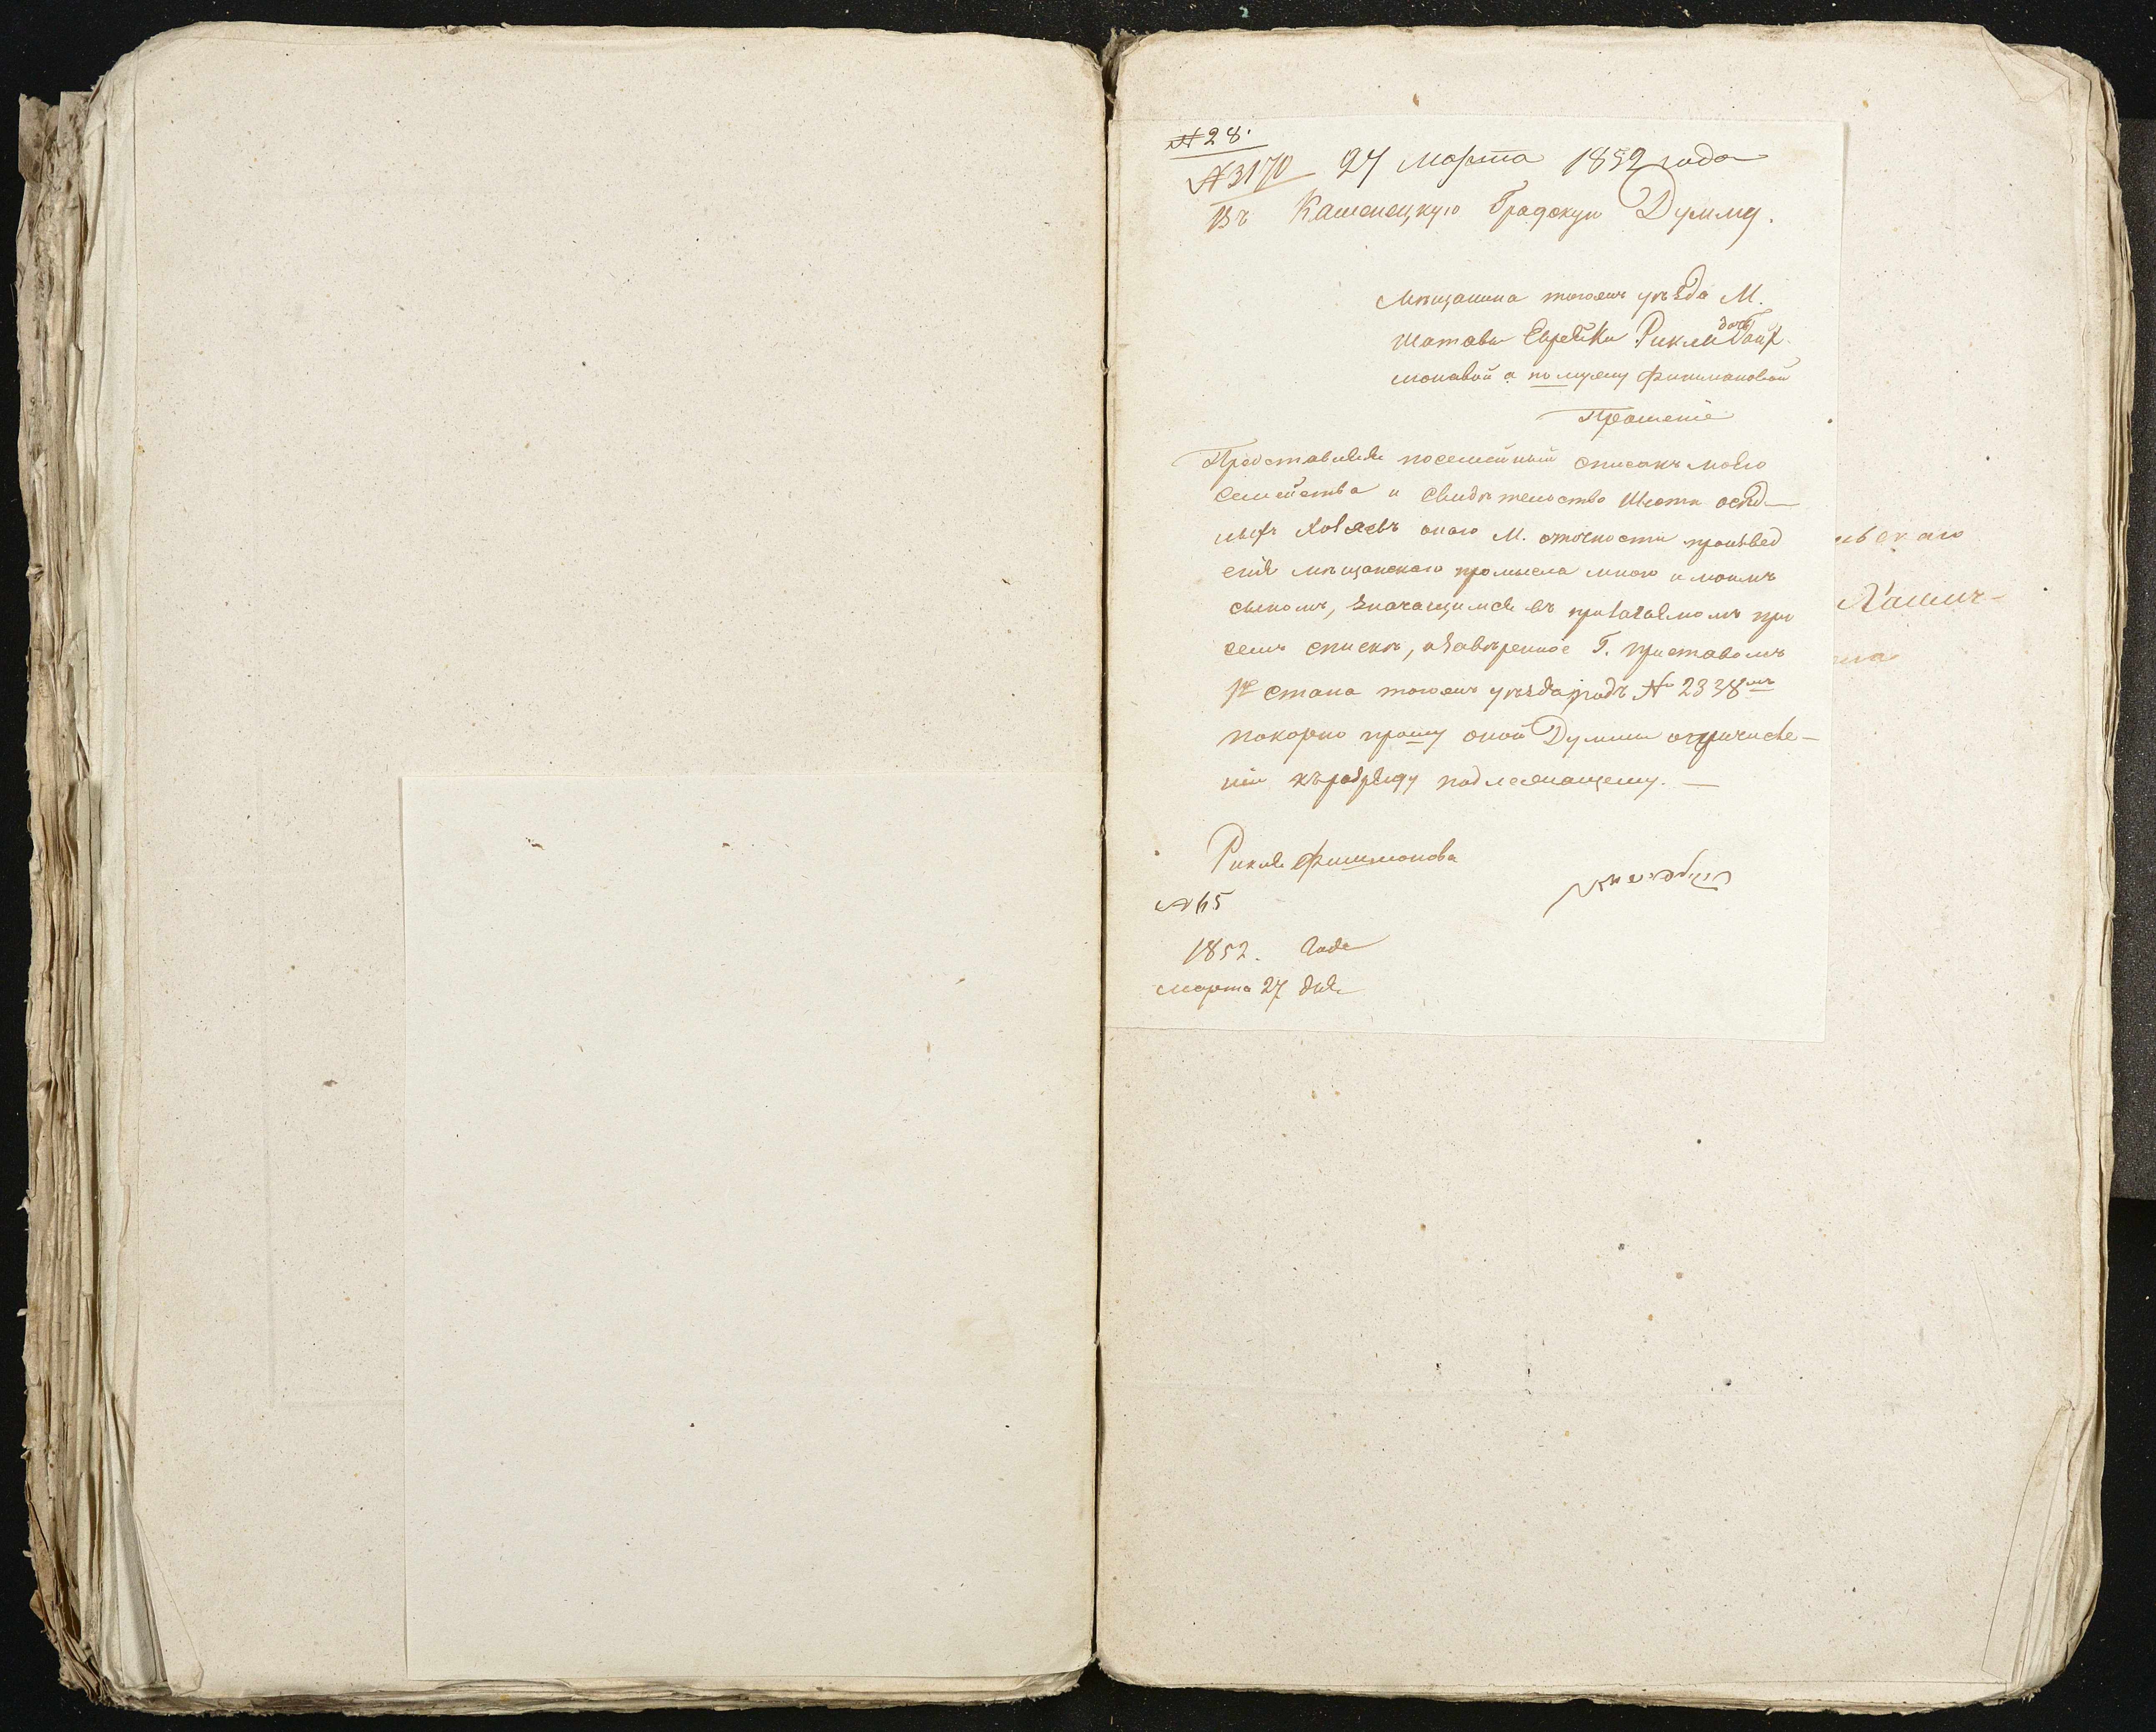 № 28.
№ 3170 27 марта 1852 года
Въ Каменецкую Градскую Думму.
Мѣщанина тогожъ уѣзда М.
Шатавы Еврейки Рикли дочь
моновой а по мужу Фишмановой
Прошеніе
Представляя посемейный списокъ моего
семейства и свидѣтельство Шести осѣд-
лыхъ Хозяевъ оного М. оточности произвед
енія мѣщанскаго промысла мною и моимъ
сыномъ, значащимся въ прилагаемомъ при
семъ спискѣ, изавѣренное Г. приставомъ
1го стана тогожъ уѣзда подъ № 2338мъ
покорно прошу оной Думми опричисле-
ніи къ разряду подлежащему. —
Рикля Фишмонова
№ 65
1852. Года
марта 27 дня
ьскаго